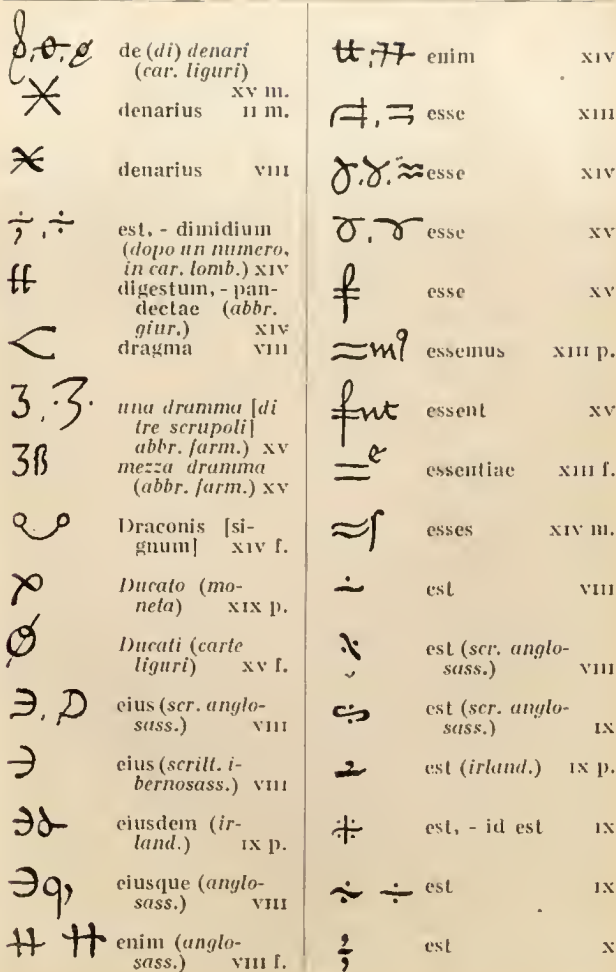 de (di) denari
(car. liguri)
xv m.
denarius II m.
denarius VIII
est, - dimidium
(dopo un numero,
in car. lomb.) XIV
digestum, - pan-
dectae (abbr.
giur.) XIV
dragma VIII
3, .3. una dramma [di
tre scrupoli]
abbr. farm.) XV
3ß mezza dramma
(abbr. farm.) XV
Draconis [si-
gnum] XIV f.
Ducato (mo-
neta) XIX p.
Ducati (carte
liguri) XV f.
eius (scr. anglo-
sass.) VIII
eius (scritt. i-
bernosass.) VIII
eiusdem (ir-
land.) IX p.
eiusque (anglo-
sass.) VIII
enim (anglo-
sass.) VIII f.
enim XIV
esse XIII
esse XIV
esse XV
esse XV
essemus XIII p.
essent XV
essentiae XIII f.
esses XIV m.
∸ est VIII
est (scr. anglo-
sass.) VIII
est (scr. anglo-
sass.) IX
est (irland.) IX p.
est, - id est IX
÷ est IX
est X